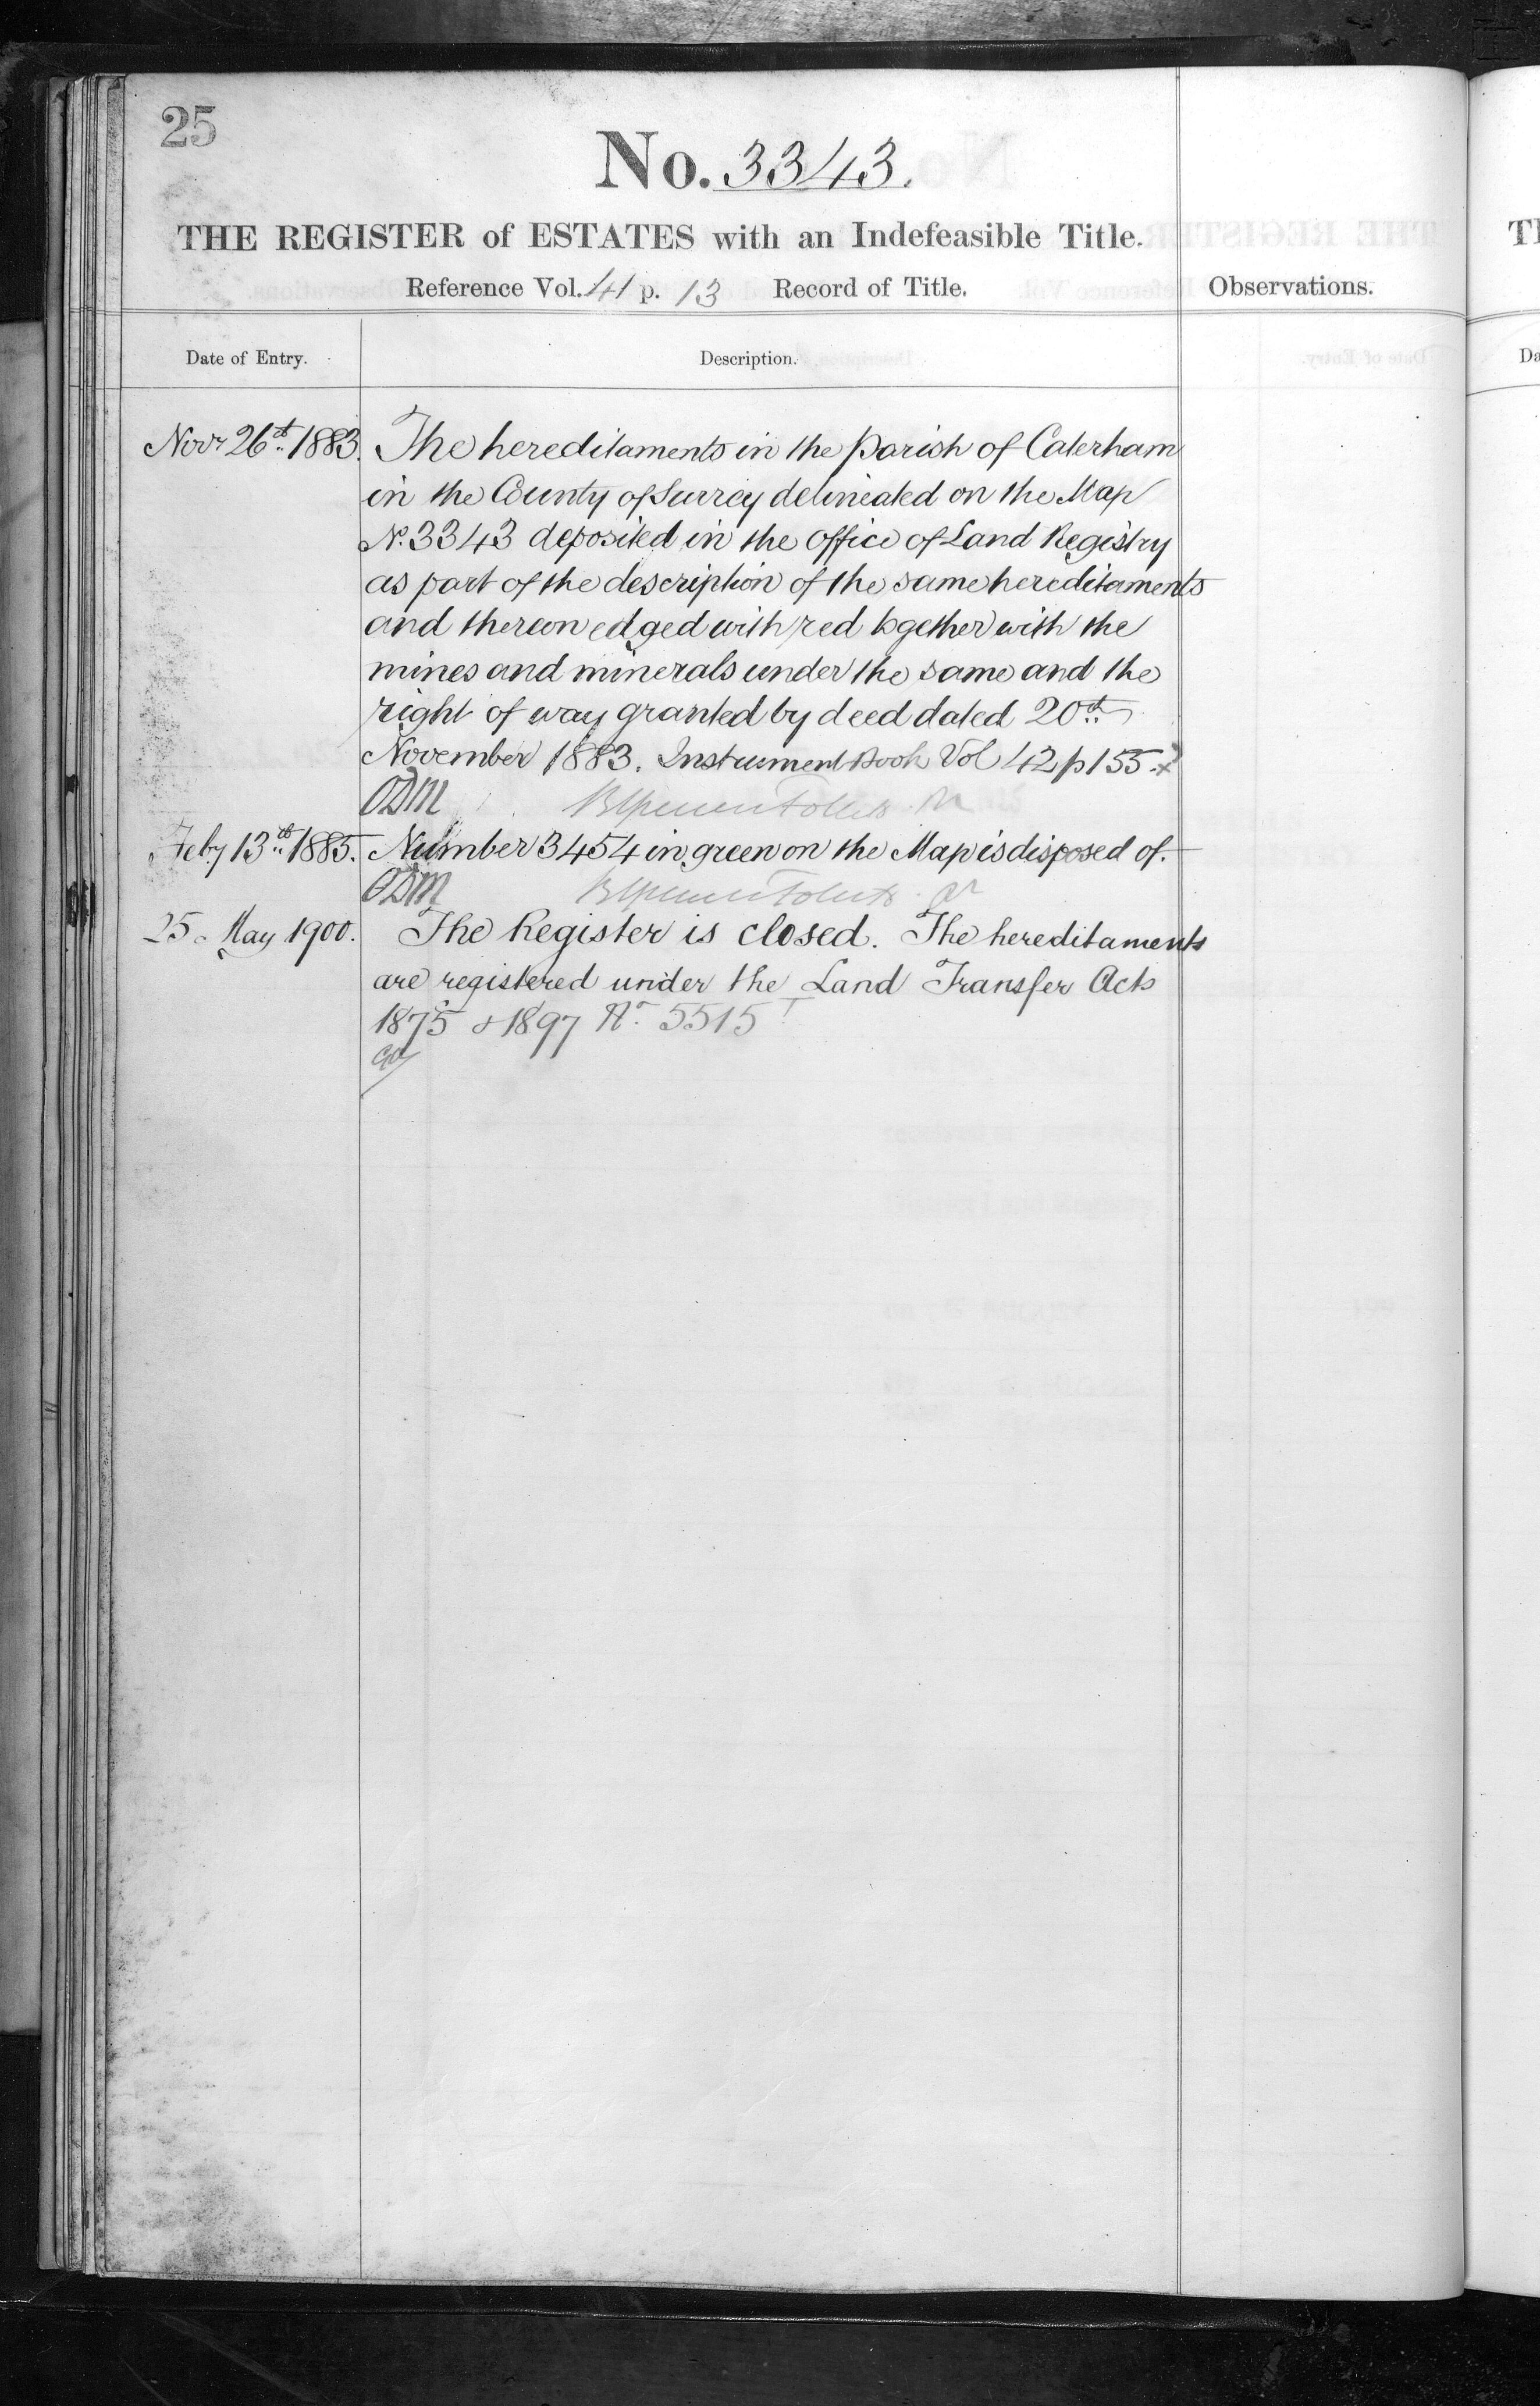 25
No. 3343.
THE REGISTER of ESTATES with an Indefeasible Title.
Reference Vol. 41 p. 13 Record of Title.
Observations.
Date of Entry.
Description.
Novr 26th 1883. The hereditaments in the Parish of Caterham
in the County of Surrey delineated on the Map
No. 3343 deposited in the office of Land Registry
as part of the description of the same hereditaments
and thereon edged with red together with the
mines and minerals under the same and the
right of way granted by deed dated 20th
November 1883. Instrument Book Vol 42 p 155
ODM
Feby 13th 1885. Number 3454 in green on the Map is disposed of.
ODM
25 May 1900. The Register is closed. The hereditaments
are registered under the Land Transfer Acts
1875 & 1897 No. 5515